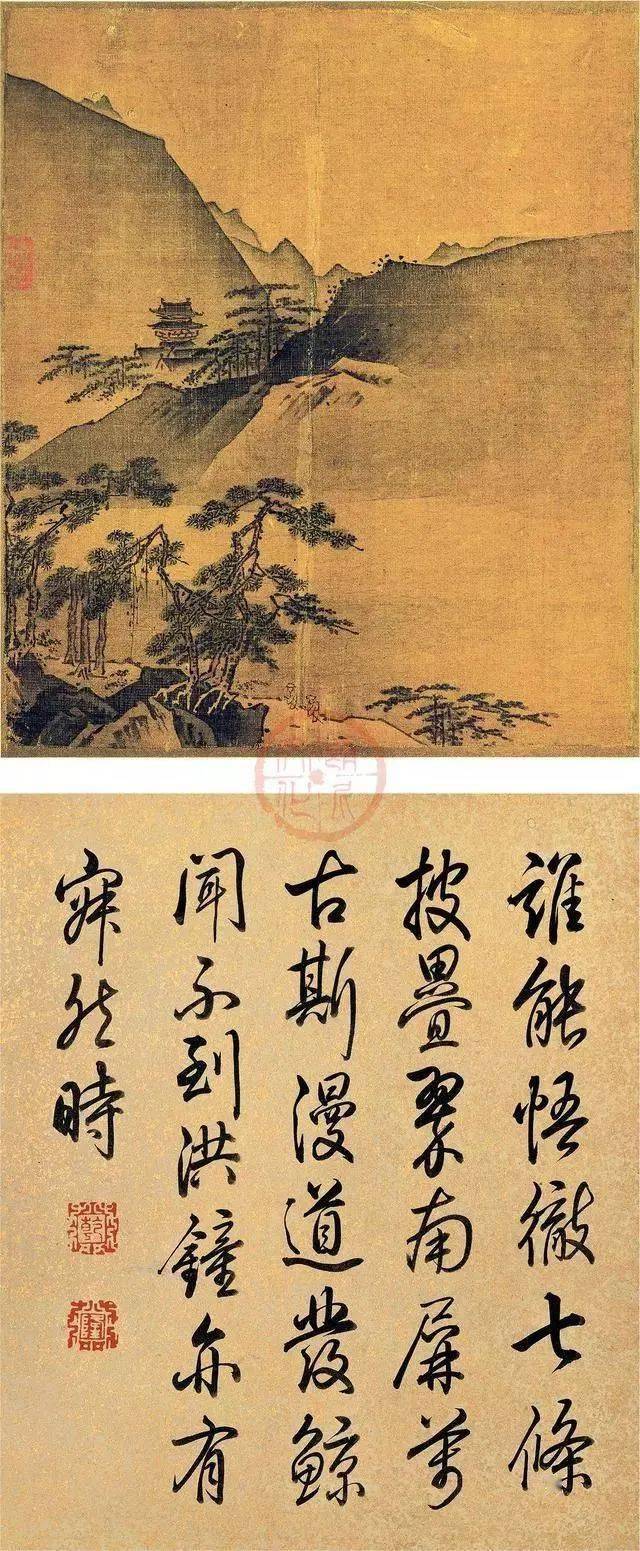 誰能悟徹七條
披疊翠南屏萬
古斯漫道發鯨
聞不到洪鐘亦有
寂然時
乾
隆